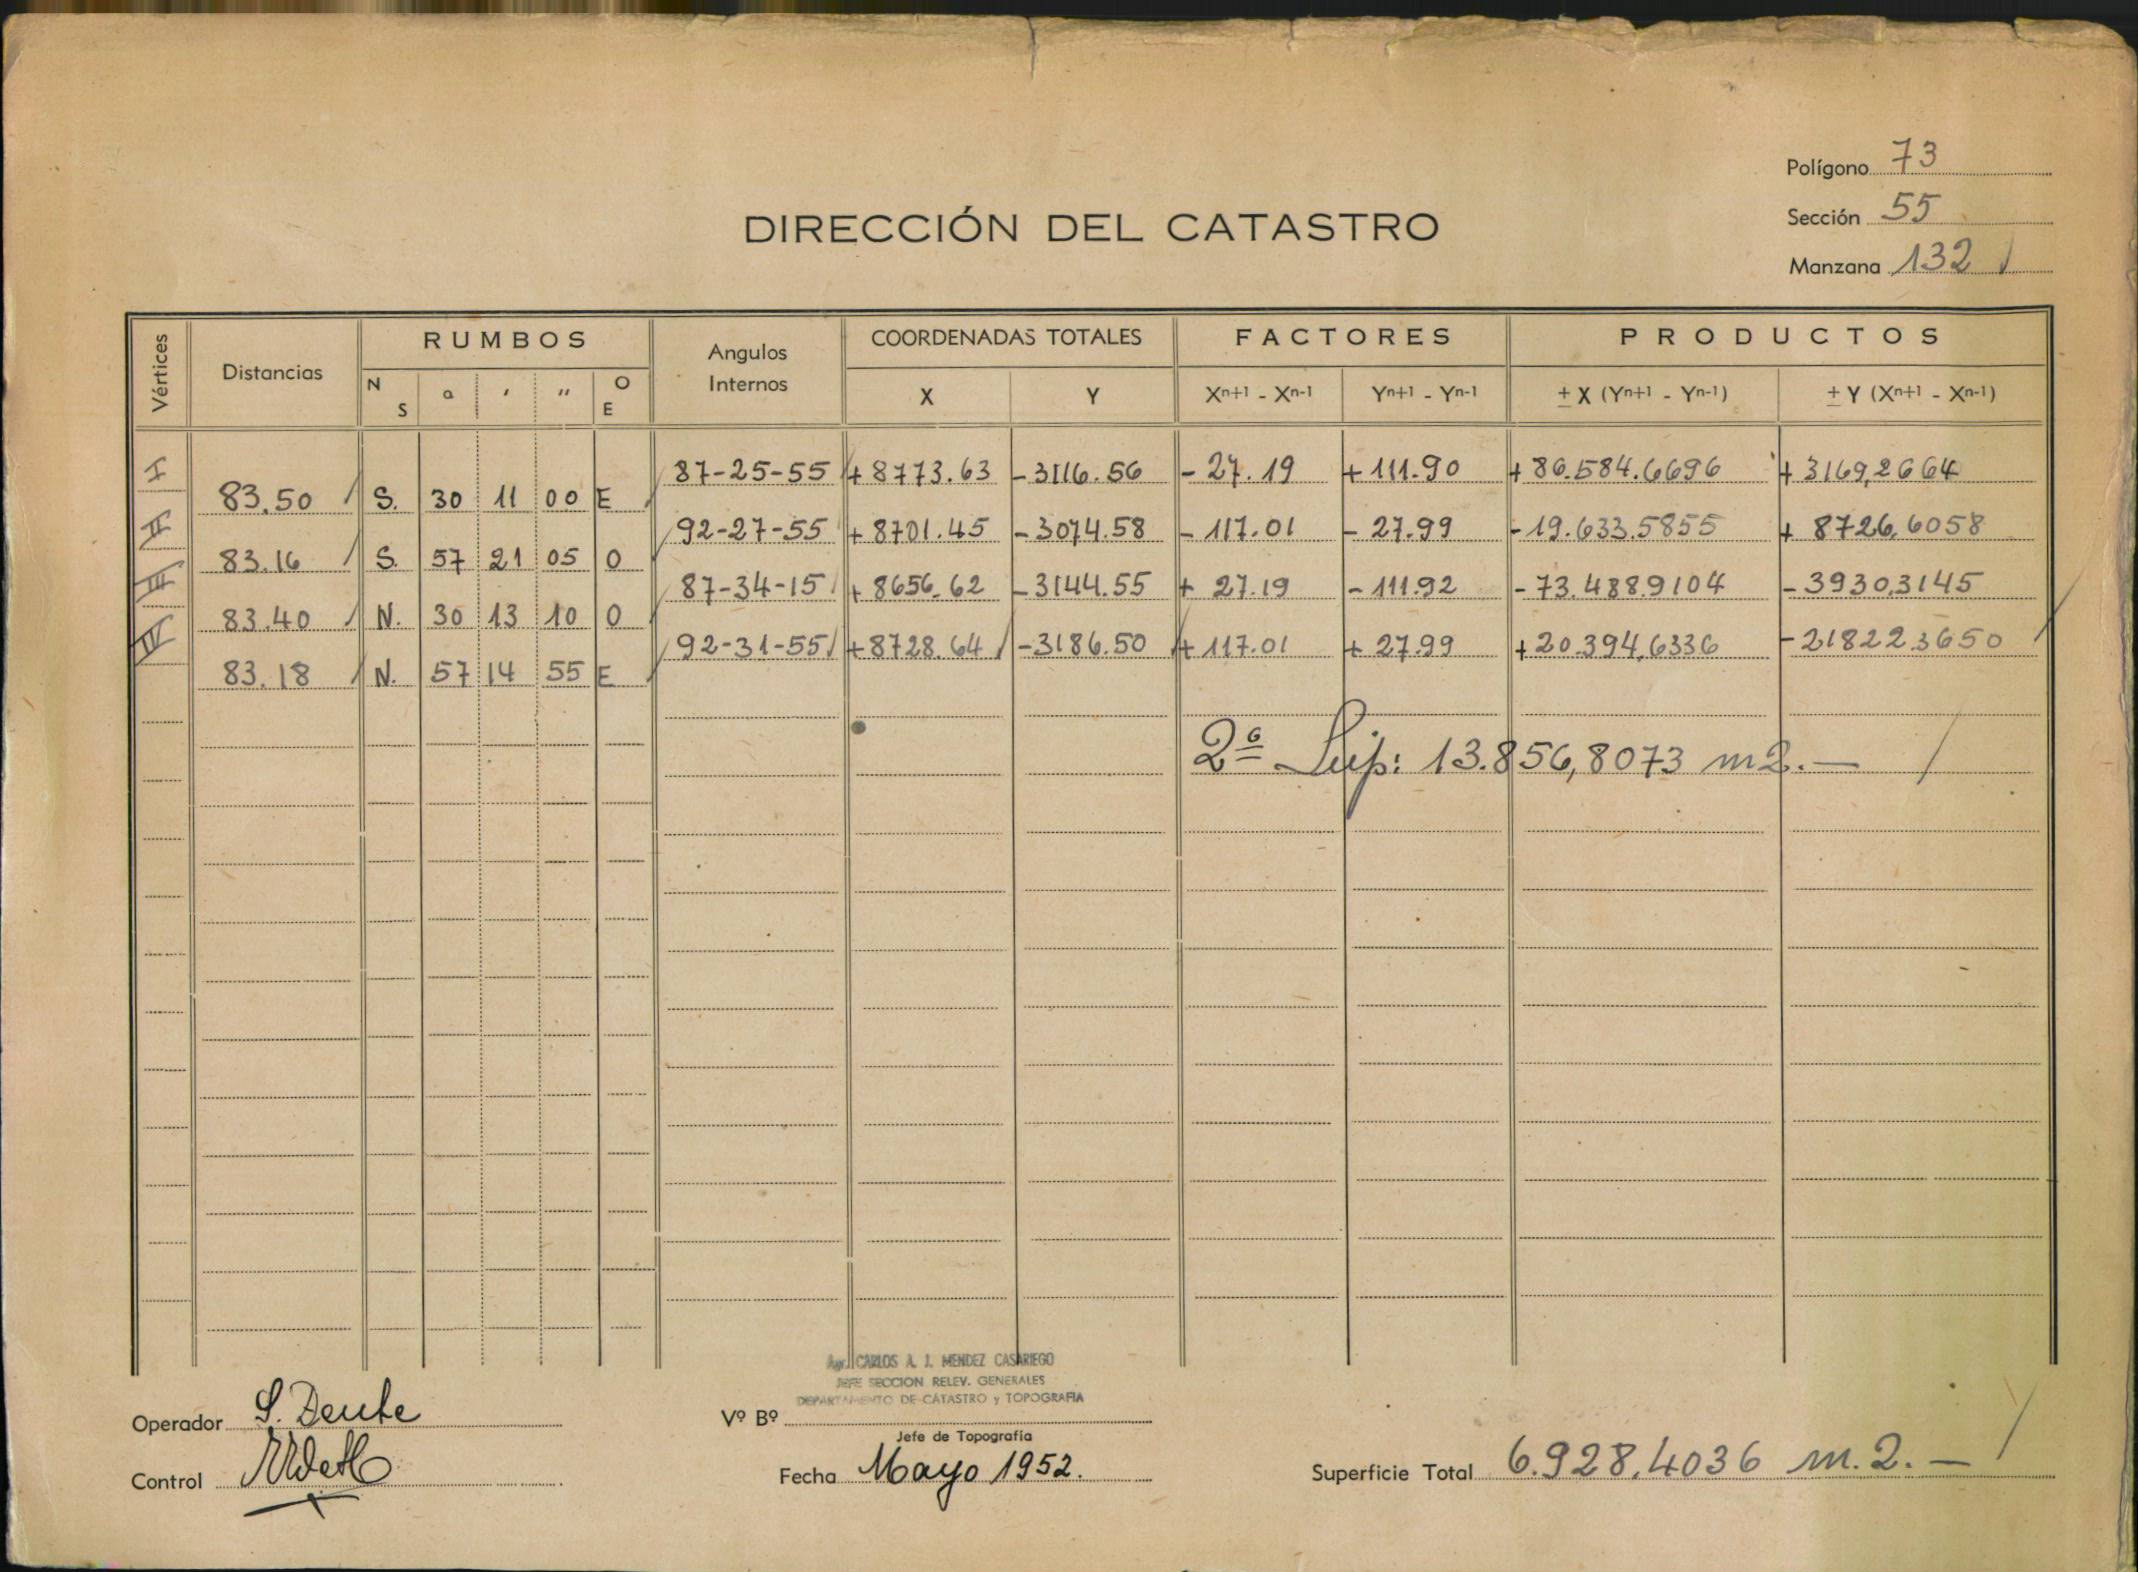 Polígono 73
Sección 55
Manzana 132
DIRECCIÓN DEL CATASTRO
Vértices Distancias RUMBOS Angulos Internos COORDENADAS TOTALES FACTORES PRODUCTOS
N S ° ' " O E X Y Xn+1 - Xn-1 Yn+1 - Yn-1 ± X (Yn+1 - Yn-1) ± Y (Xn+1 - Xn-1)
I 87-25-55 +8773.63 -3116.56 -27.19 +111.90 +86.584.6696 +3169,2664
83.50 S. 30 11 00 E
II 92-27-55 +8701.45 -3074.58 -117.01 -27.99 -19.633.5855 +8726,6058
83.16 S. 57 21 05 O
III 87-34-15 +8656.62 -3144.55 +27.19 -111.92 -73.488.9104 -3930,3145
83.40 N. 30 13 10 O
IV 92-31-55 +8728.64 -3186.50 +117.01 +27.99 +20.394,6336 -21822.3650
83.18 N. 57 14 55 E
2ª Sup: 13.856,8073 m2.—
Agr. CARLOS A. J. MENDEZ CASARIEGO
JEFE SECCION RELEV. GENERALES
DEPARTAMENTO DE CATASTRO y TOPOGRAFIA
Operador S. Deube
Vº Bº
Jefe de Topografía
Control
Fecha Mayo 1952.
Superficie Total 6.928,4036 m.2.—